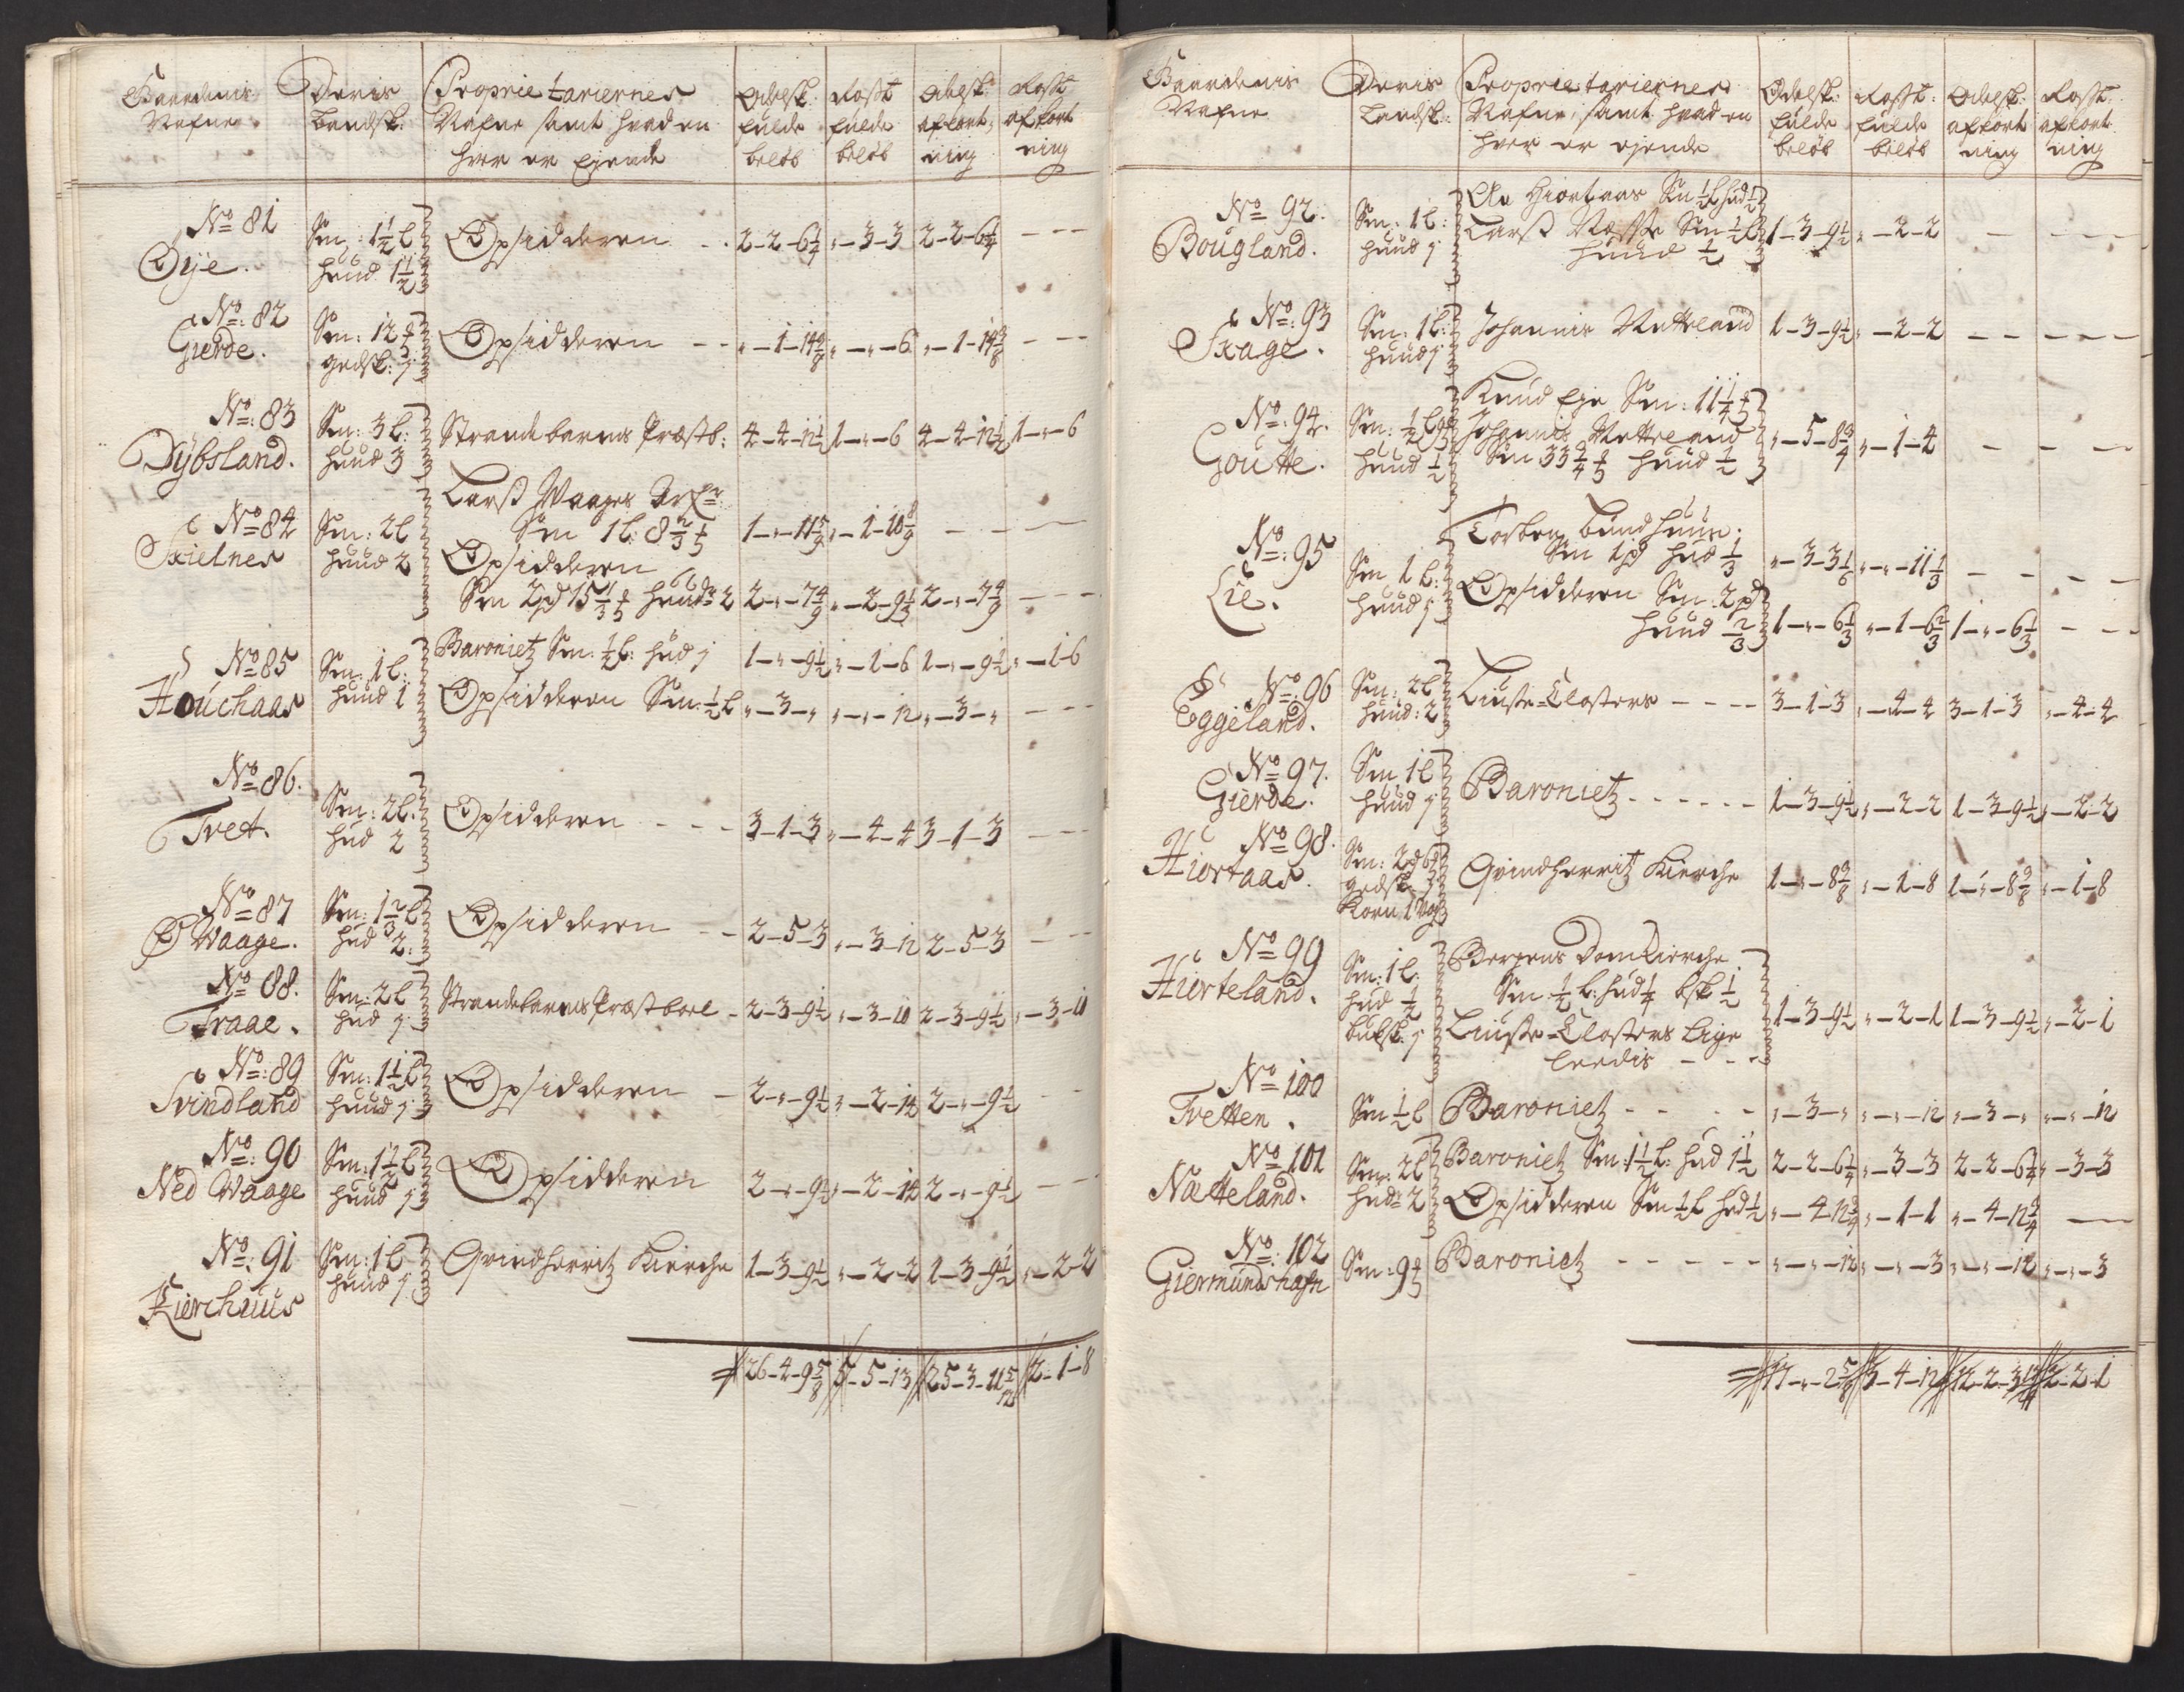 Gaardenis Nafne | Deris Landsk: | Proprietariernes Nafne samt hvad en hver er Eyende | Odelsk: fulde beløb | Rosst fulde beløb | Odelsk: afkortning | Rosst afkortning
No 81 Øye. | Sm: 1½ l hud 1½ | Opsidderen | 2-2-6¼ | „-3-3 | 2-2-6¼ | - - -
No: 82 Gierde. | Sm: 12 gedsk: j | Opsidderen | „-1-14 | „-„-6 | „-1-14 | - - -
No: 83 Dybsland. | Sm: 3 l: hud 3 | Strandebarms Præstb: | 4-4-12½ | 1-„-6 | 4-4-12½ | 1-„-6
No 84 Skielnes | Sm: 2 l hud 2 | Larss Waages
Sm 1 l: 8⅔ | 1-„-11 5/9 | „-1-10 8/9 | - - -
Opsidderen
Sm 2 pd 15⅓ hud 2 | 2-„-7 4/9 | „-2-9⅓ | 2-„-7 4/9 | - - -
No 85 Houchaas | Sm: 1 l: hud 1 | Baronietz Sm: ½ l: hud j | 1-„-9½ | „-1-6 | 1-„-9½ | „-1-6
Opsidderen Sm: ½ l | „-3-„ | „-„-12 | „-3-„ | - - -
No 86. Tvet. | Sm: 2 l. hud 2 | Opsidderen | 3-1-3 | „-4-4 | 3-1-3 | - - -
No 87 Ø Waage. | Sm: 1⅔ l hud 2: | Opsidderen | 2-5-3 | „-3-12 | 2-5-3 | - - -
No 88. Traae. | Sm: 2 l hud j | Strandebarms Præstboel | 2-3-9½ | „-3-10 | 2-3-9½ | „-3-10
No: 89 Svindland | Sm: 1½ l hud j | Opsidderen | 2-„-9½ | „-2-14 | 2-„-9½ | -
No: 90 Ned Waage | Sm: 1½ l hud j | Opsidderen | 2-„-9½ | „-2-14 | 2-„-9½ | - - -
No: 91 Kierchuus | Sm: 1 l hud j | Qvindherritz Kierche | 1-3-9½ | „-2-2 | 1-3-9½ | „-2-2
26-4-9⅝ | 5-5-13 | 25-3-11 5/12 | 2-1-8
Gaardenis Nafne | Deris Landsk: | Proprietariernes Nafne, samt hvad en hver er ejende | Odelsk: fulde beløb | Rosst: fulde beløb | Odelsk: afkortning | Rosst: afkortning
No 92. Bougland. | Sm: 1 l: hud j | Ole Hiortaas Sm ½ l hud ½
Larss Sm ½ l hud ½ | 1-3-9½ | „-2-2 | - | - - -
No: 93 Skage. | Sm: 1 l: hud j | Johannis Netteland | 1-3-9½ | „-2-2 | - - | - - -
No: 94. Goutte. | Sm: ½ l hud ½ | Knud Eye Sm: 11¼
Johannis Netteland
Sm 33¾ hud ½ | „-5-8¾ | „-1-4 | - | - -
No: 95 Lie. | Sm 1 l: hud j | Torben Bundhuus.
Sm 1 pd hud ⅓ | „-3-3⅙ | „-„-11⅓ | - - | - -
Opsidderen Sm: 2 pd
hud ⅔ | 1-„-6⅓ | „-1-6⅔ | 1-„-6⅓ | - - -
No: 96 Eggeland. | Sm: 2 l hud: 2 | Liusse-Closters | 3-1-3 | „-4-4 | 3-1-3 | „-4-4
No 97. Gierde. | Sm 1 l hud j | Baronietz | 1-3-9½ | „-2-2 | 1-3-9½ | „-2-2
No 98. Hiortaas. | Sm: 2 pd 6 gedsk: j Korn 1 vog | Qvindherritz Kierche | 1-„-8 | „-1-8 | 1-„-8 | „-1-8
No 99 Hierteland. | Sm: 1 l: hud ½ buksk: j | Bergens Domkierche
Sm ½ l: hud ¼ bsk ½
Liusse-Closters Lige
leedis | 1-3-9½ | „-2-1 | 1-3-9½ | „-2-1
No 100 Tvetten. | Sm ½ l | Baronietz | „-3-„ | „-„-12 | „-3-„ | „-„-12
No 101 Nætteland. | Sm: 2 l hud 2 | Baronietz Sm: 1½ l: hud 1½ | 2-2-6¼ | „-3-3 | 2-2-6¼ | „-3-3
Opsidderen Sm ½ l hud ½ | „-4-12¾ | „-1-1 | „-4-12¾ | -
No: 102 Giermundshafn | Sm: 9 | Baronietz | „-„-12 | „-„-3 | „-„-12 | „-„-3
17-„-2⅝ | 3-4-12 | 12-2-3 | 2-2-1